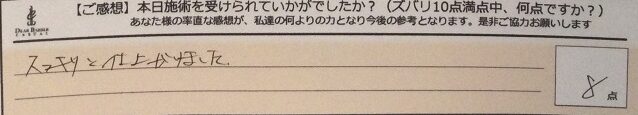 【ご感想】本日施術を受けられていかがでしたか？（ズバリ10点満点中、何点ですか？）
あなた様の率直な感想が、私達の何よりの力となり今後の参考となります。是非ご協力お願いします
スッキリと仕上がりました。
8点